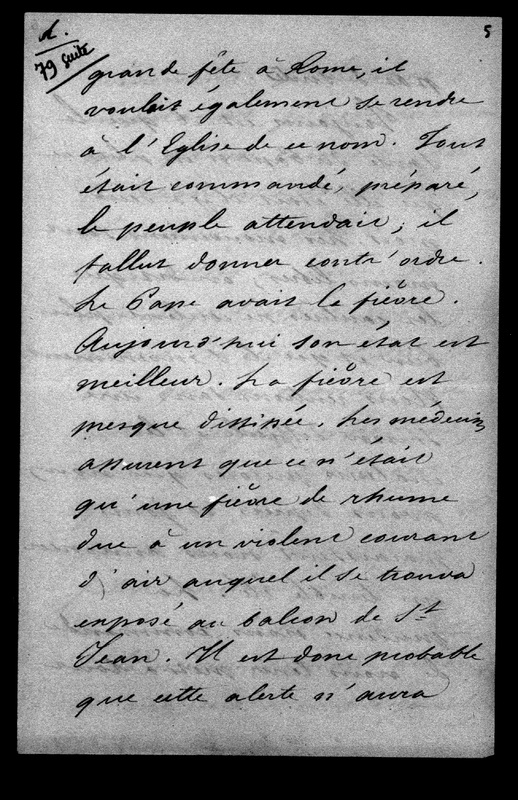 A.
79 suite
5
grande fête à Rome, il
voulait également se rendre
à l'Eglise de ce nom. Tout
était commandé, préparé,
le peuple attendait; il
fallut donner contr'ordre.
Le Pape avait la fièvre.
Aujourd'hui son état est
meilleur. La fièvre est
presque dissipée. Les médecins
assurent que ce n'était
qu'une fièvre de rhume
due à un violent courant
d'air auquel il se trouva
exposé au balcon de St
Jean. Il est donc probable
que cette alerte n'aura